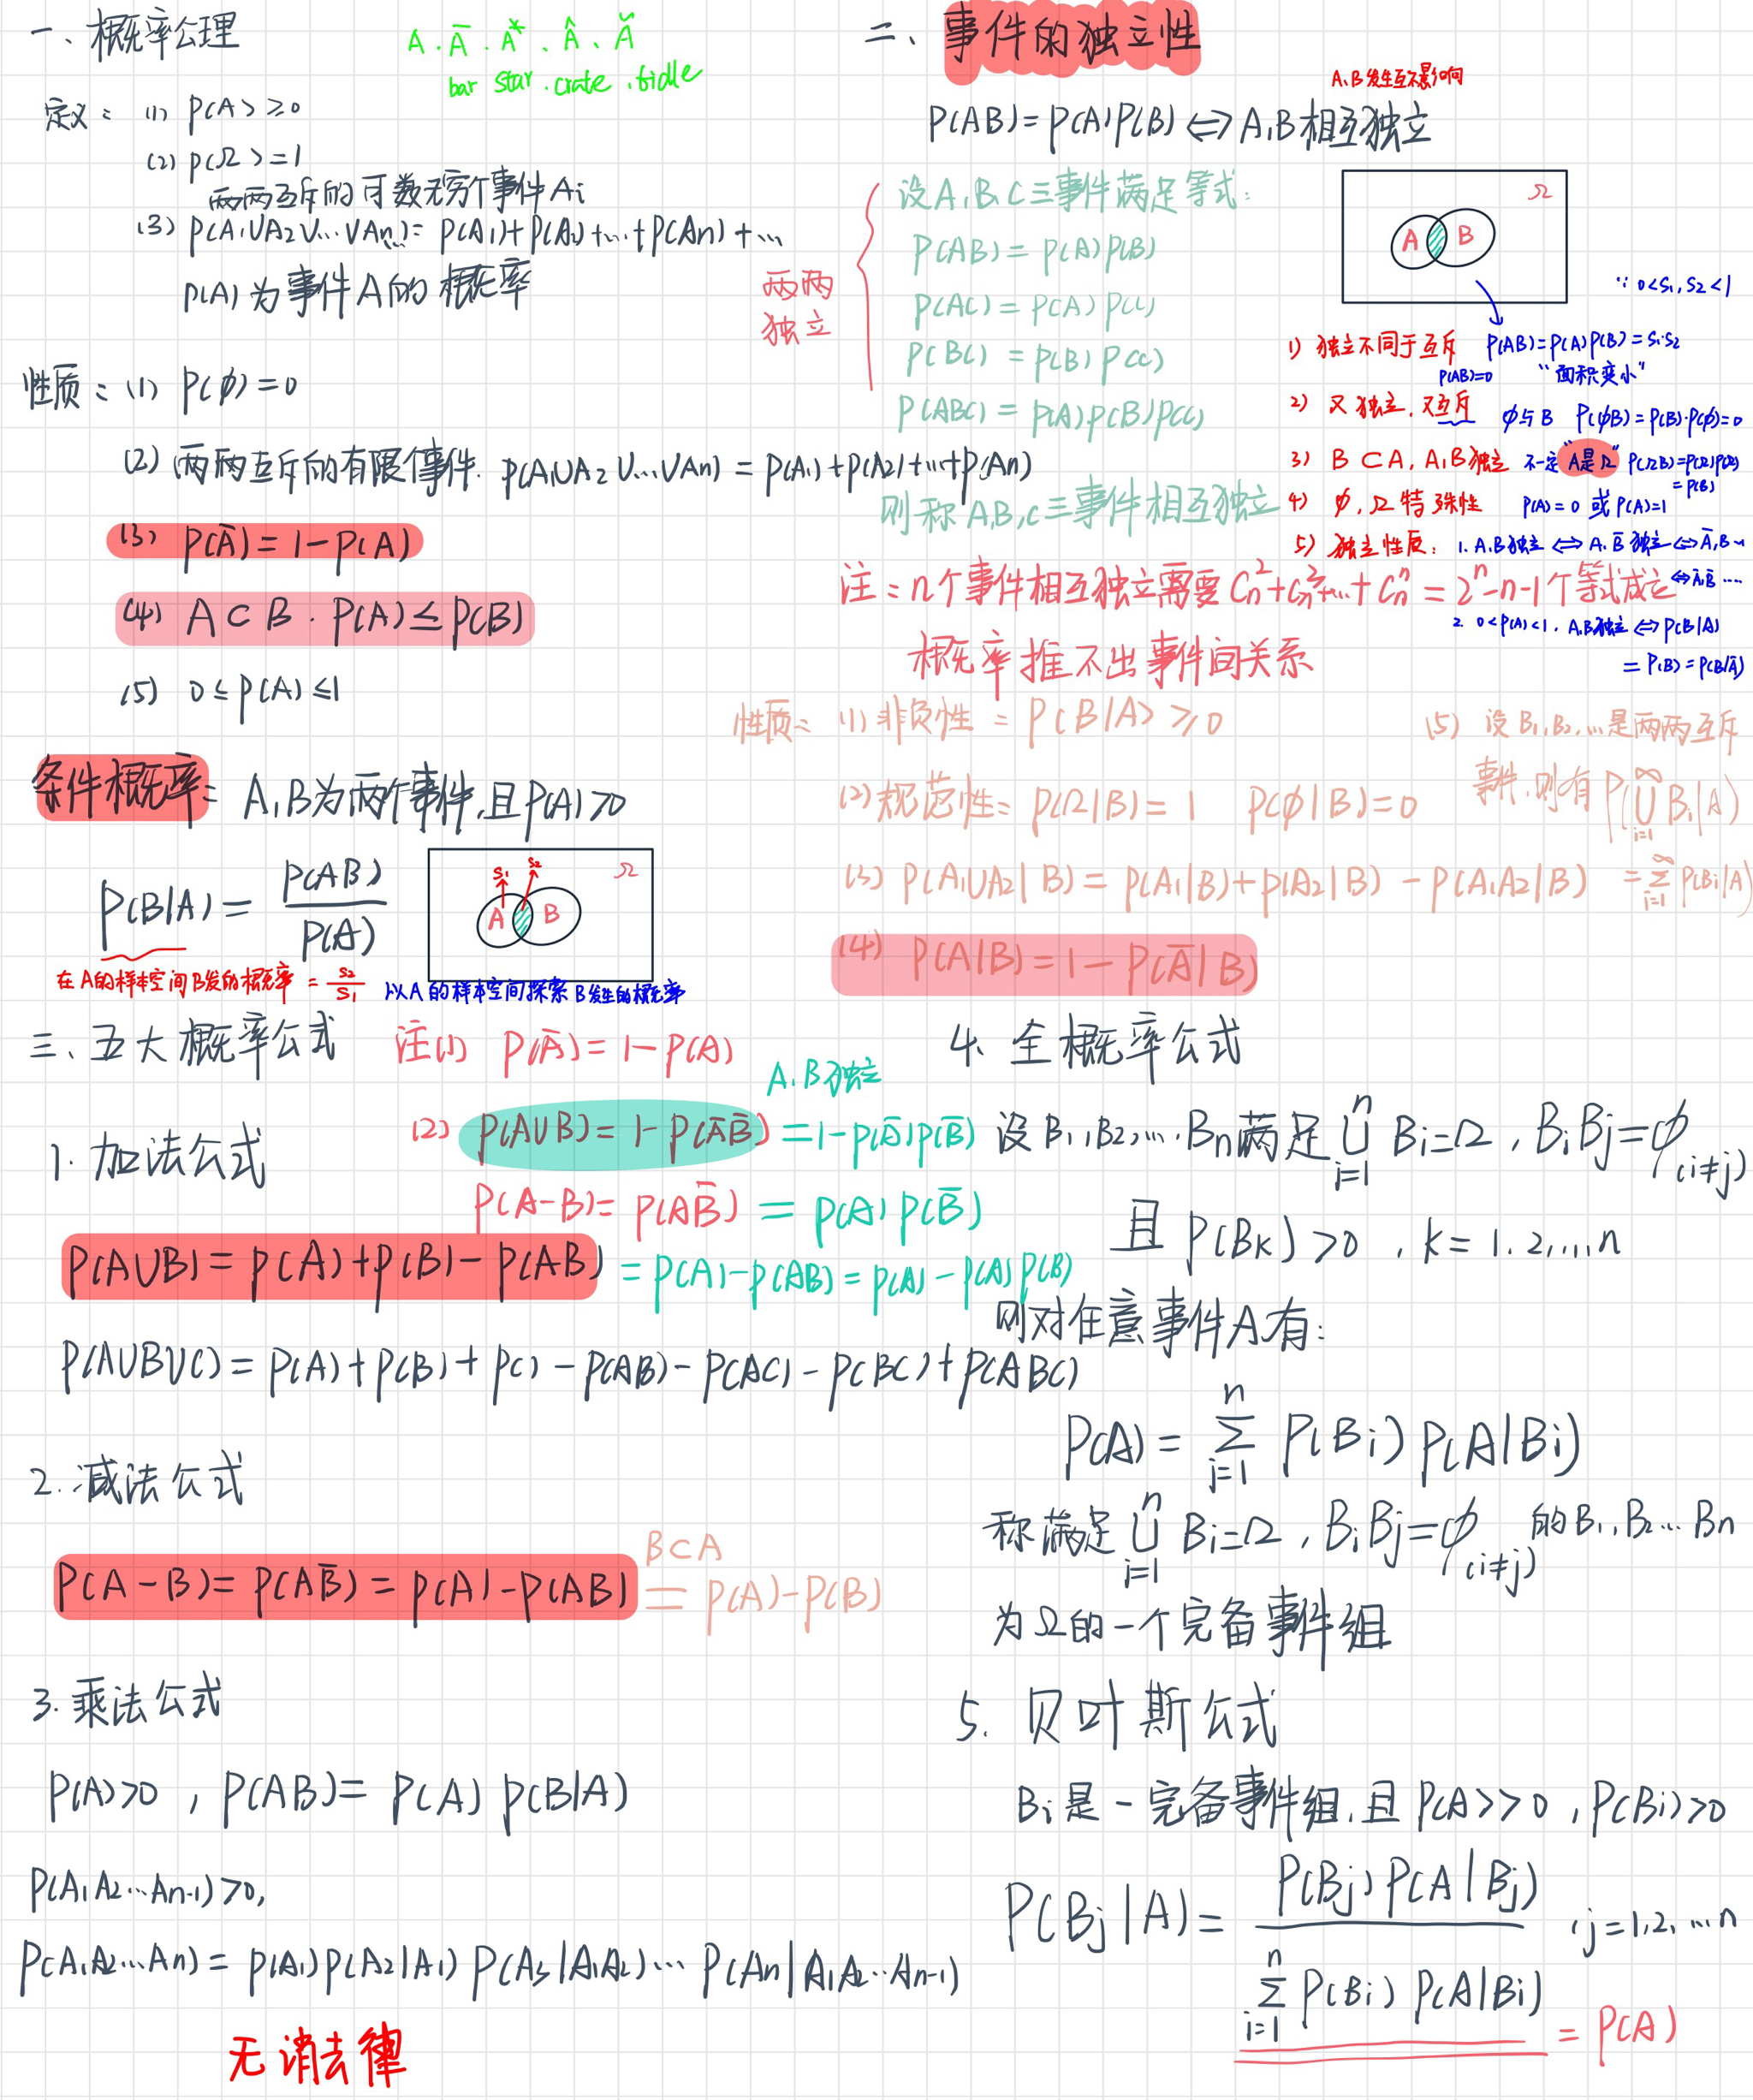 一、概率公理
A . A̅ . A* 、 Â 、 Ã
bar star . crate . tidle
定义: (1) P(A) ≥ 0
(2) P(Ω) = 1
两两互斥的可数无穷个事件 Ai
(3) P(A₁∪A₂∪...∪An...) = P(A₁)+P(A₂)+...+P(An)+...
P(A) 为事件A的概率
性质: (1) P(φ) = 0
(2) 两两互斥的有限个事件. P(A₁∪A₂∪...∪An) = P(A₁)+P(A₂)+...+P(An)
(3) P(A̅) = 1 - P(A)
(4) A⊂B . P(A) ≤ P(B)
(5) 0 ≤ P(A) ≤ 1
条件概率: A,B为两个事件,且P(A)>0
P(B|A) = P(AB) / P(A)
S₁ S₂ Ω
A B
在A的样本空间B发的概率 = S₂/S₁
以A的样本空间探索B发生的概率
二、事件的独立性
A,B发生互不影响
P(AB) = P(A)P(B) ⟺ A,B相互独立
设A,B,C三事件满足等式:
P(AB) = P(A)P(B)
P(AC) = P(A)P(C)
P(BC) = P(B)P(C)
两两
独立
P(ABC) = P(A)P(B)P(C)
则称A,B,C三事件相互独立
Ω
A B
∵ 0<S₁,S₂<1
1) 独立不同于互斥 P(AB)=P(A)P(B)=S₁·S₂
P(AB)=0 “面积变小”
2) 又独立,又互斥 φ与B P(φB)=P(B)·P(φ)=0
3) B⊂A, A,B独立 不一定 “A是Ω” P(ΩB)=P(Ω)P(B)
=P(B)
4) φ,Ω特殊性 P(A)=0 或 P(A)=1
5) 独立性质: 1. A,B独立 ⟺ A,B̅独立 ⟺ A̅,B ...
⟺ A̅,B̅ ....
2. 0<P(A)<1, A,B独立 ⟺ P(B|A)
= P(B) = P(B|A̅)
注: n个事件相互独立需要 Cn²+Cn³+...+Cnⁿ = 2ⁿ-n-1个等式成立
概率推不出事件间关系
性质: (1) 非负性 = P(B|A) ≥ 0
(2) 规范性: P(Ω|B) = 1 P(φ|B) = 0
(3) P(A₁∪A₂|B) = P(A₁|B)+P(A₂|B) - P(A₁A₂|B)
(4) P(A|B) = 1 - P(A̅|B)
(5) 设B₁,B₂,...是两两互斥
事件,则有 P(∪_{i=1}^{∞} Bi|A)
= Σ_{i=1}^{∞} P(Bi|A)
三、五大概率公式
注(1) P(A̅) = 1 - P(A)
A,B独立
(2) P(A∪B) = 1 - P(A̅B̅) = 1 - P(A̅)P(B̅)
P(A-B) = P(AB̅) = P(A)P(B̅)
= P(A)-P(AB) = P(A)-P(A)P(B)
1. 加法公式
P(A∪B) = P(A)+P(B)-P(AB)
P(A∪B∪C) = P(A)+P(B)+P(C)-P(AB)-P(AC)-P(BC)+P(ABC)
2. 减法公式
P(A-B) = P(AB̅) = P(A)-P(AB) = P(A)-P(B)
B⊂A
3. 乘法公式
P(A)>0 , P(AB) = P(A) P(B|A)
P(A₁A₂...An-1)>0,
P(A₁A₂...An) = P(A₁)P(A₂|A₁) P(A₃|A₁A₂)... P(An|A₁A₂...An-1)
无消去律
4、全概率公式
设B₁,B₂,...,Bn满足 ∪_{i=1}^{n} Bi=Ω , BiBj=φ (i≠j)
且 P(Bk)>0 , k=1.2,...n
则对任意事件A有:
P(A) = Σ_{j=1}^{n} P(Bi)P(A|Bi)
称满足 ∪_{i=1}^{n} Bi=Ω , BiBj=φ (i≠j) 的B₁,B₂...Bn
为Ω的一个完备事件组
5. 贝叶斯公式
Bi是一完备事件组,且P(A)>0 , P(Bi)>0
P(Bj|A) = P(Bj)P(A|Bj) / Σ_{i=1}^{n} P(Bi)P(A|Bi) , j=1,2,...n
= P(A)